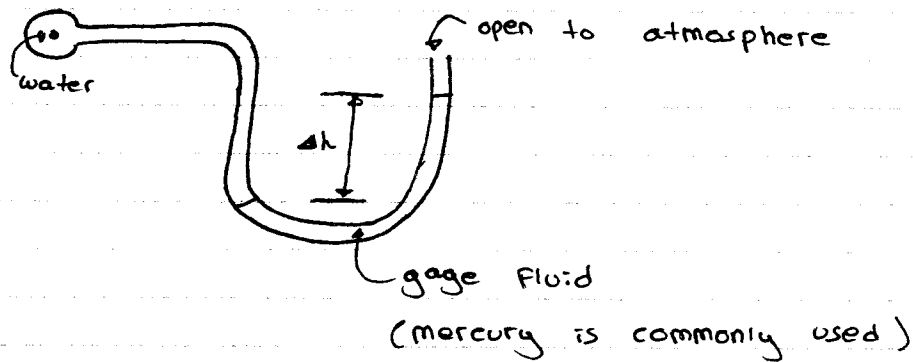 open to atmosphere
water
Δh
gage fluid
(mercury is commonly used)